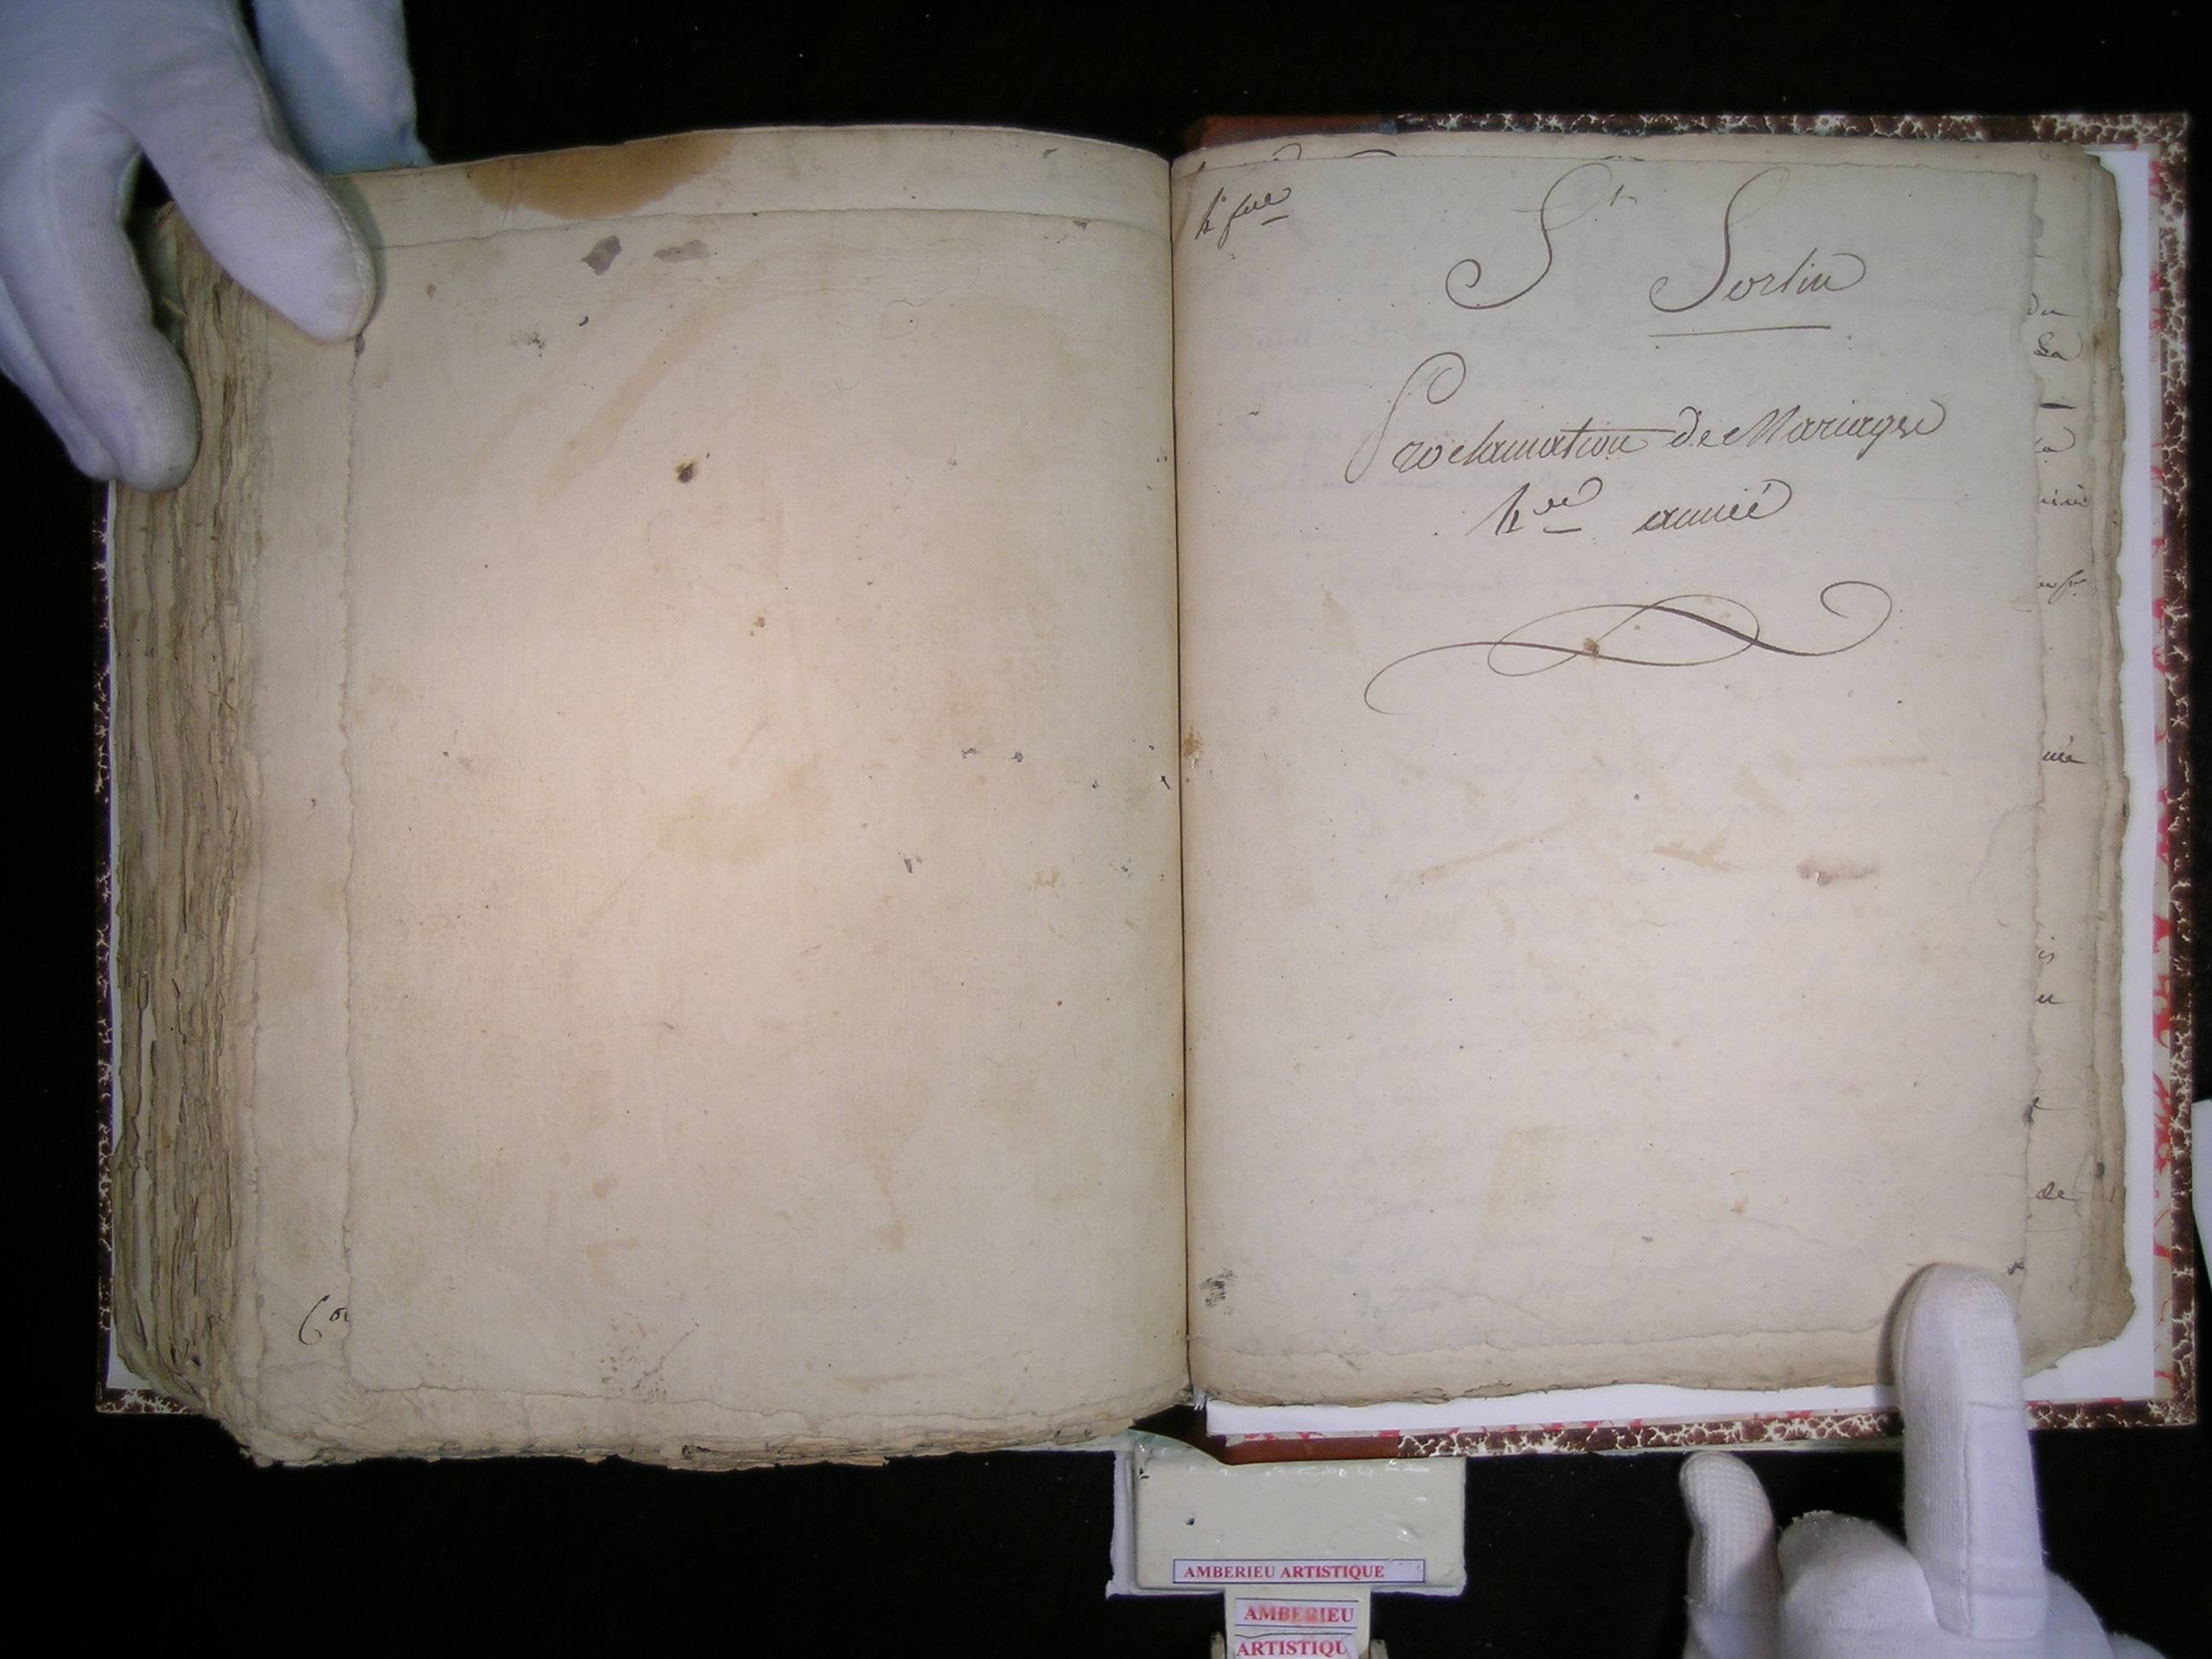 St Sorlin
Proclamation de Mariage
4ee année
de
AMBERIEU ARTISTIQUE
AMBERIEU
ARTISTIQU